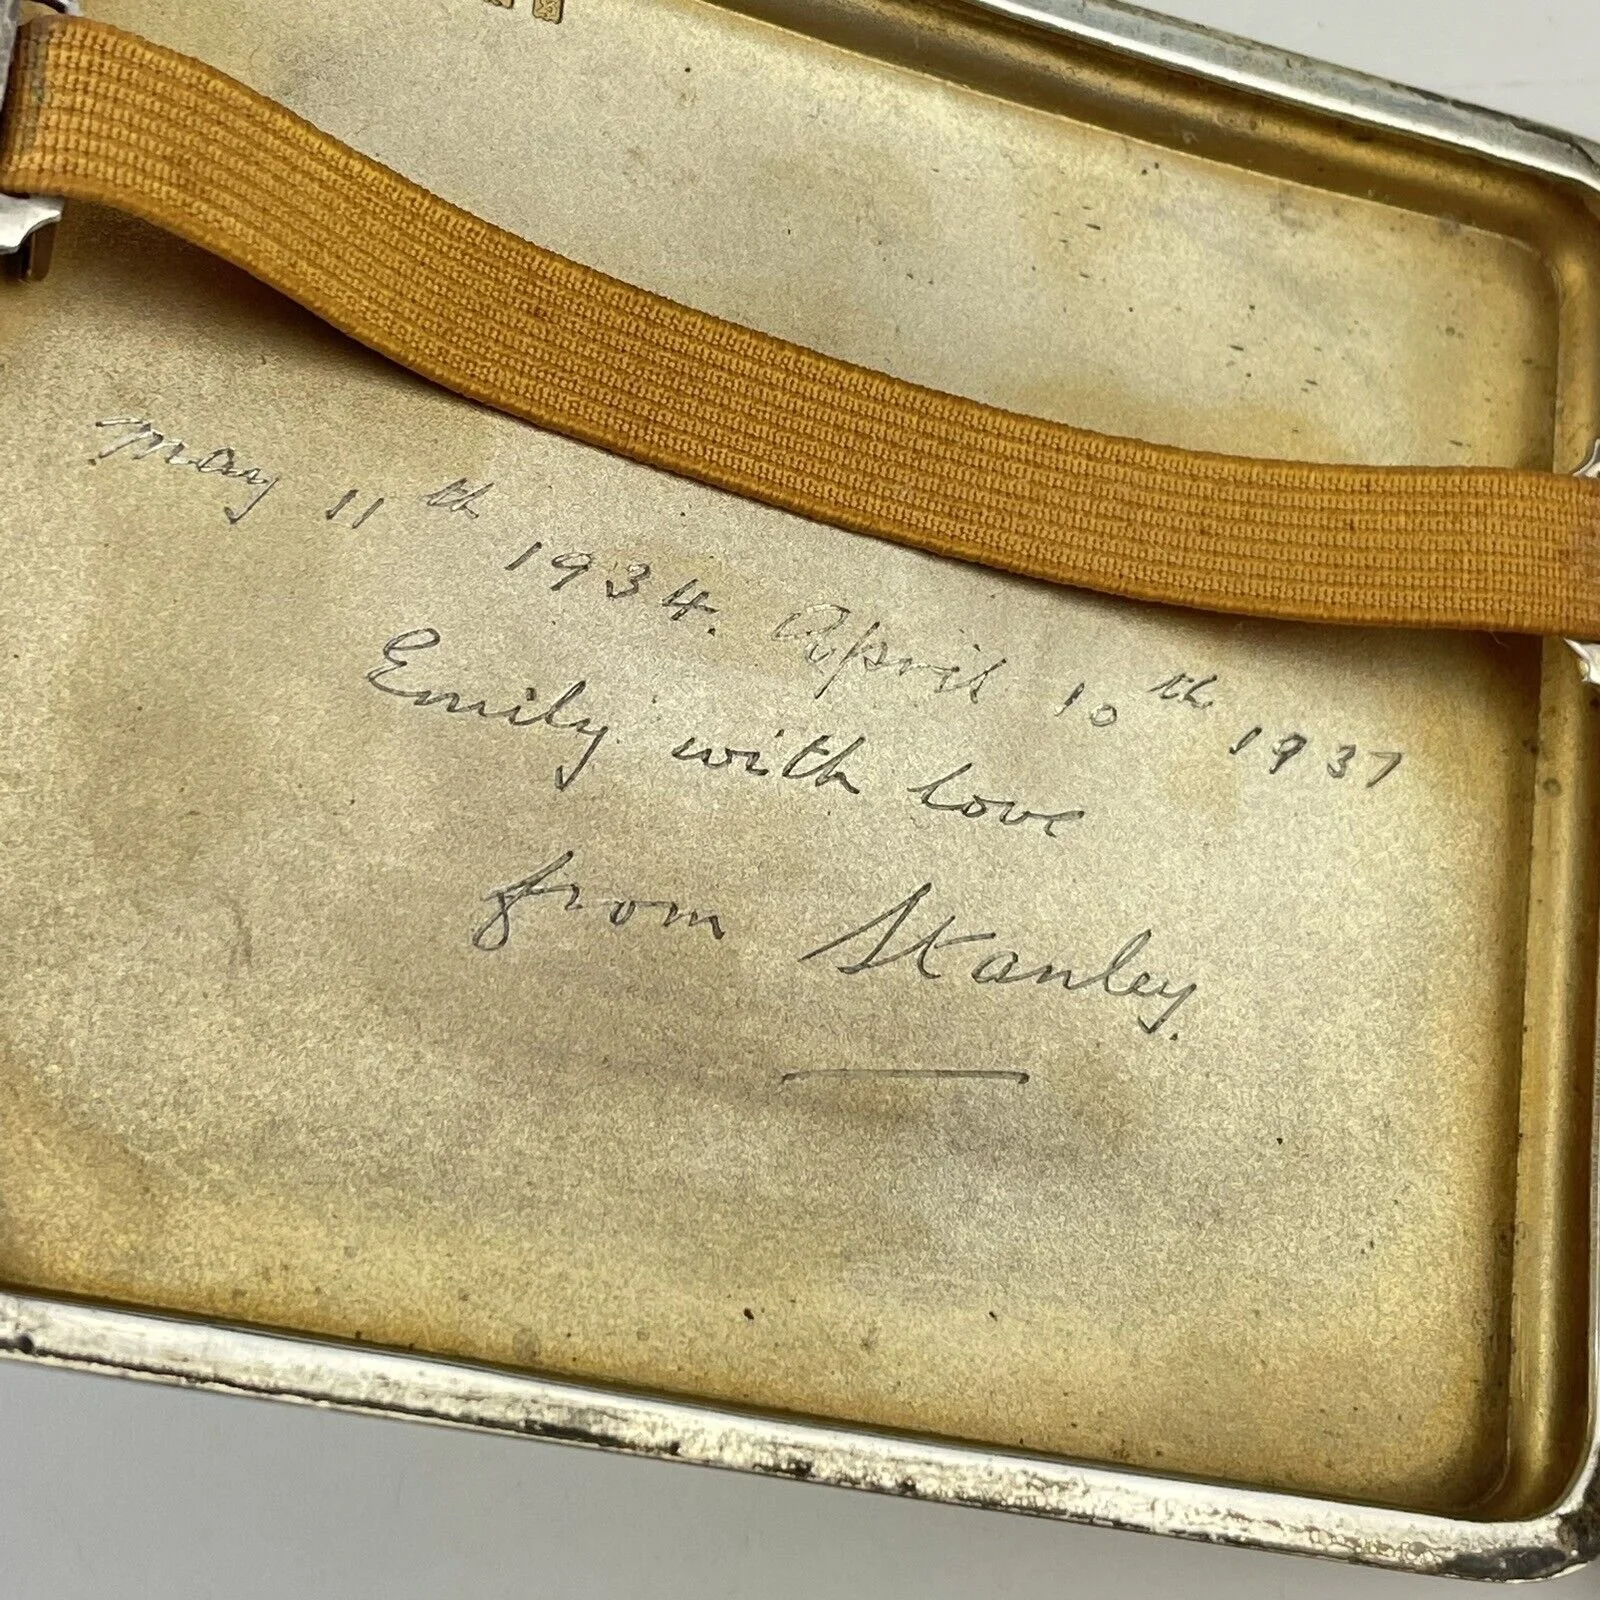 May 11th 1934. April 10th 1937
Emily with love
from Stanley.